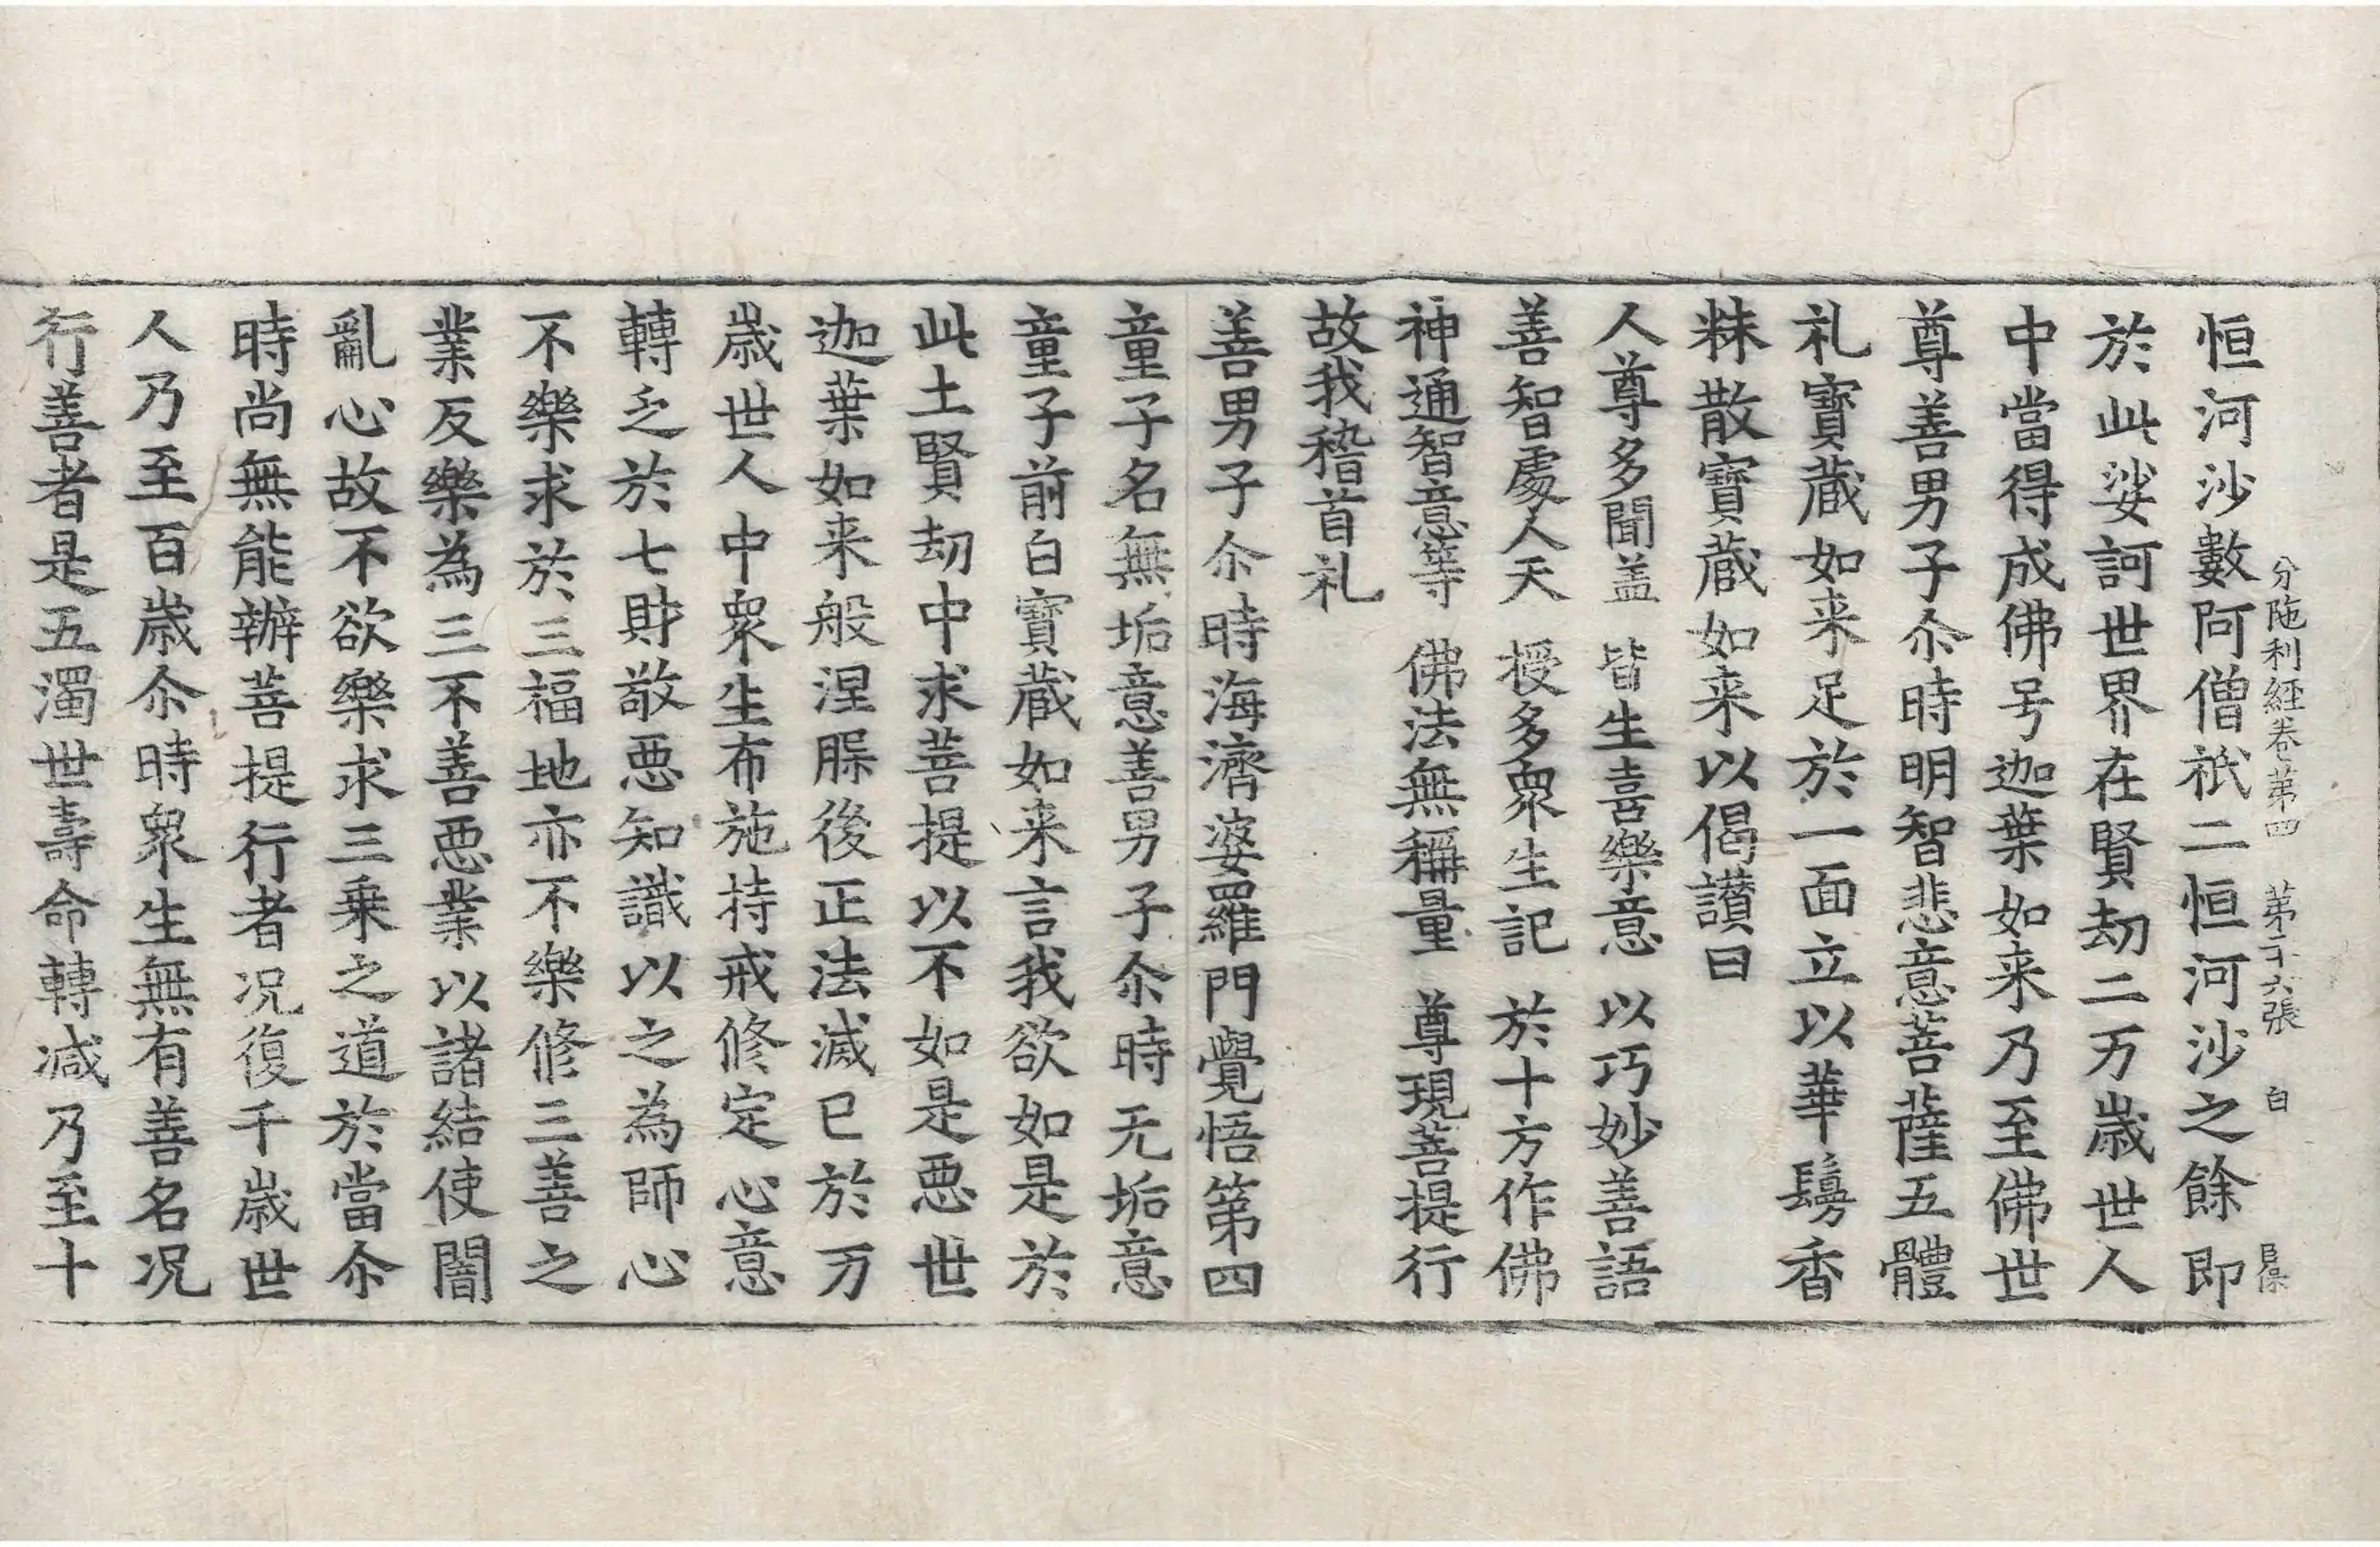 分陁利經卷第四 第二十六張 白
恒河沙數阿僧祇二恒河沙之餘即
於此娑訶世界在賢劫二万歲世人
中當得成佛号迦葉如来乃至佛世
尊善男子尒時明智悲意菩薩五體
礼寶蔵如来足於一面立以華鬘香
粖散寶蔵如来以偈讃曰
人尊多聞盖 皆生喜樂意 以巧妙善語
善智處人天 授多衆生記 於十方作佛
神通智意等 佛法無稱量 尊現菩提行
故我稽首礼
善男子尒時海濟婆羅門覺悟第四
童子名無垢意善男子尒時无垢意
童子前白寶蔵如来言我欲如是於
此土賢劫中求菩提以不如是惡世
迦葉如来般涅𦙶後正法滅已於万
歲世人中衆生布施持戒修定心意
轉乏於七財敬惡知識以之為師心
不樂求於三福地亦不樂修三善之
業反樂為三不善惡業以諸結使闇
亂心故不欲樂求三乗之道於當尒
時尚無能辦菩提行者况復千歲世
人乃至百歲尒時衆生無有善名况
行善者是五濁世壽命轉減乃至十